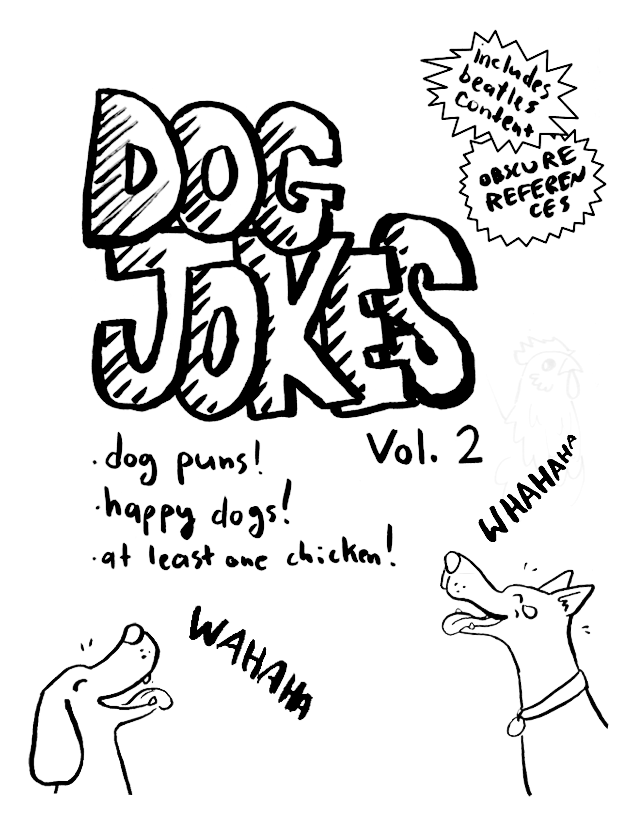 includes
beatles
content
OBSCURE
REFEREN
CES
DOG
JOKES
Vol. 2
· dog puns!
· happy dogs!
· at least one chicken!
WHAHAHA
WAHAHA